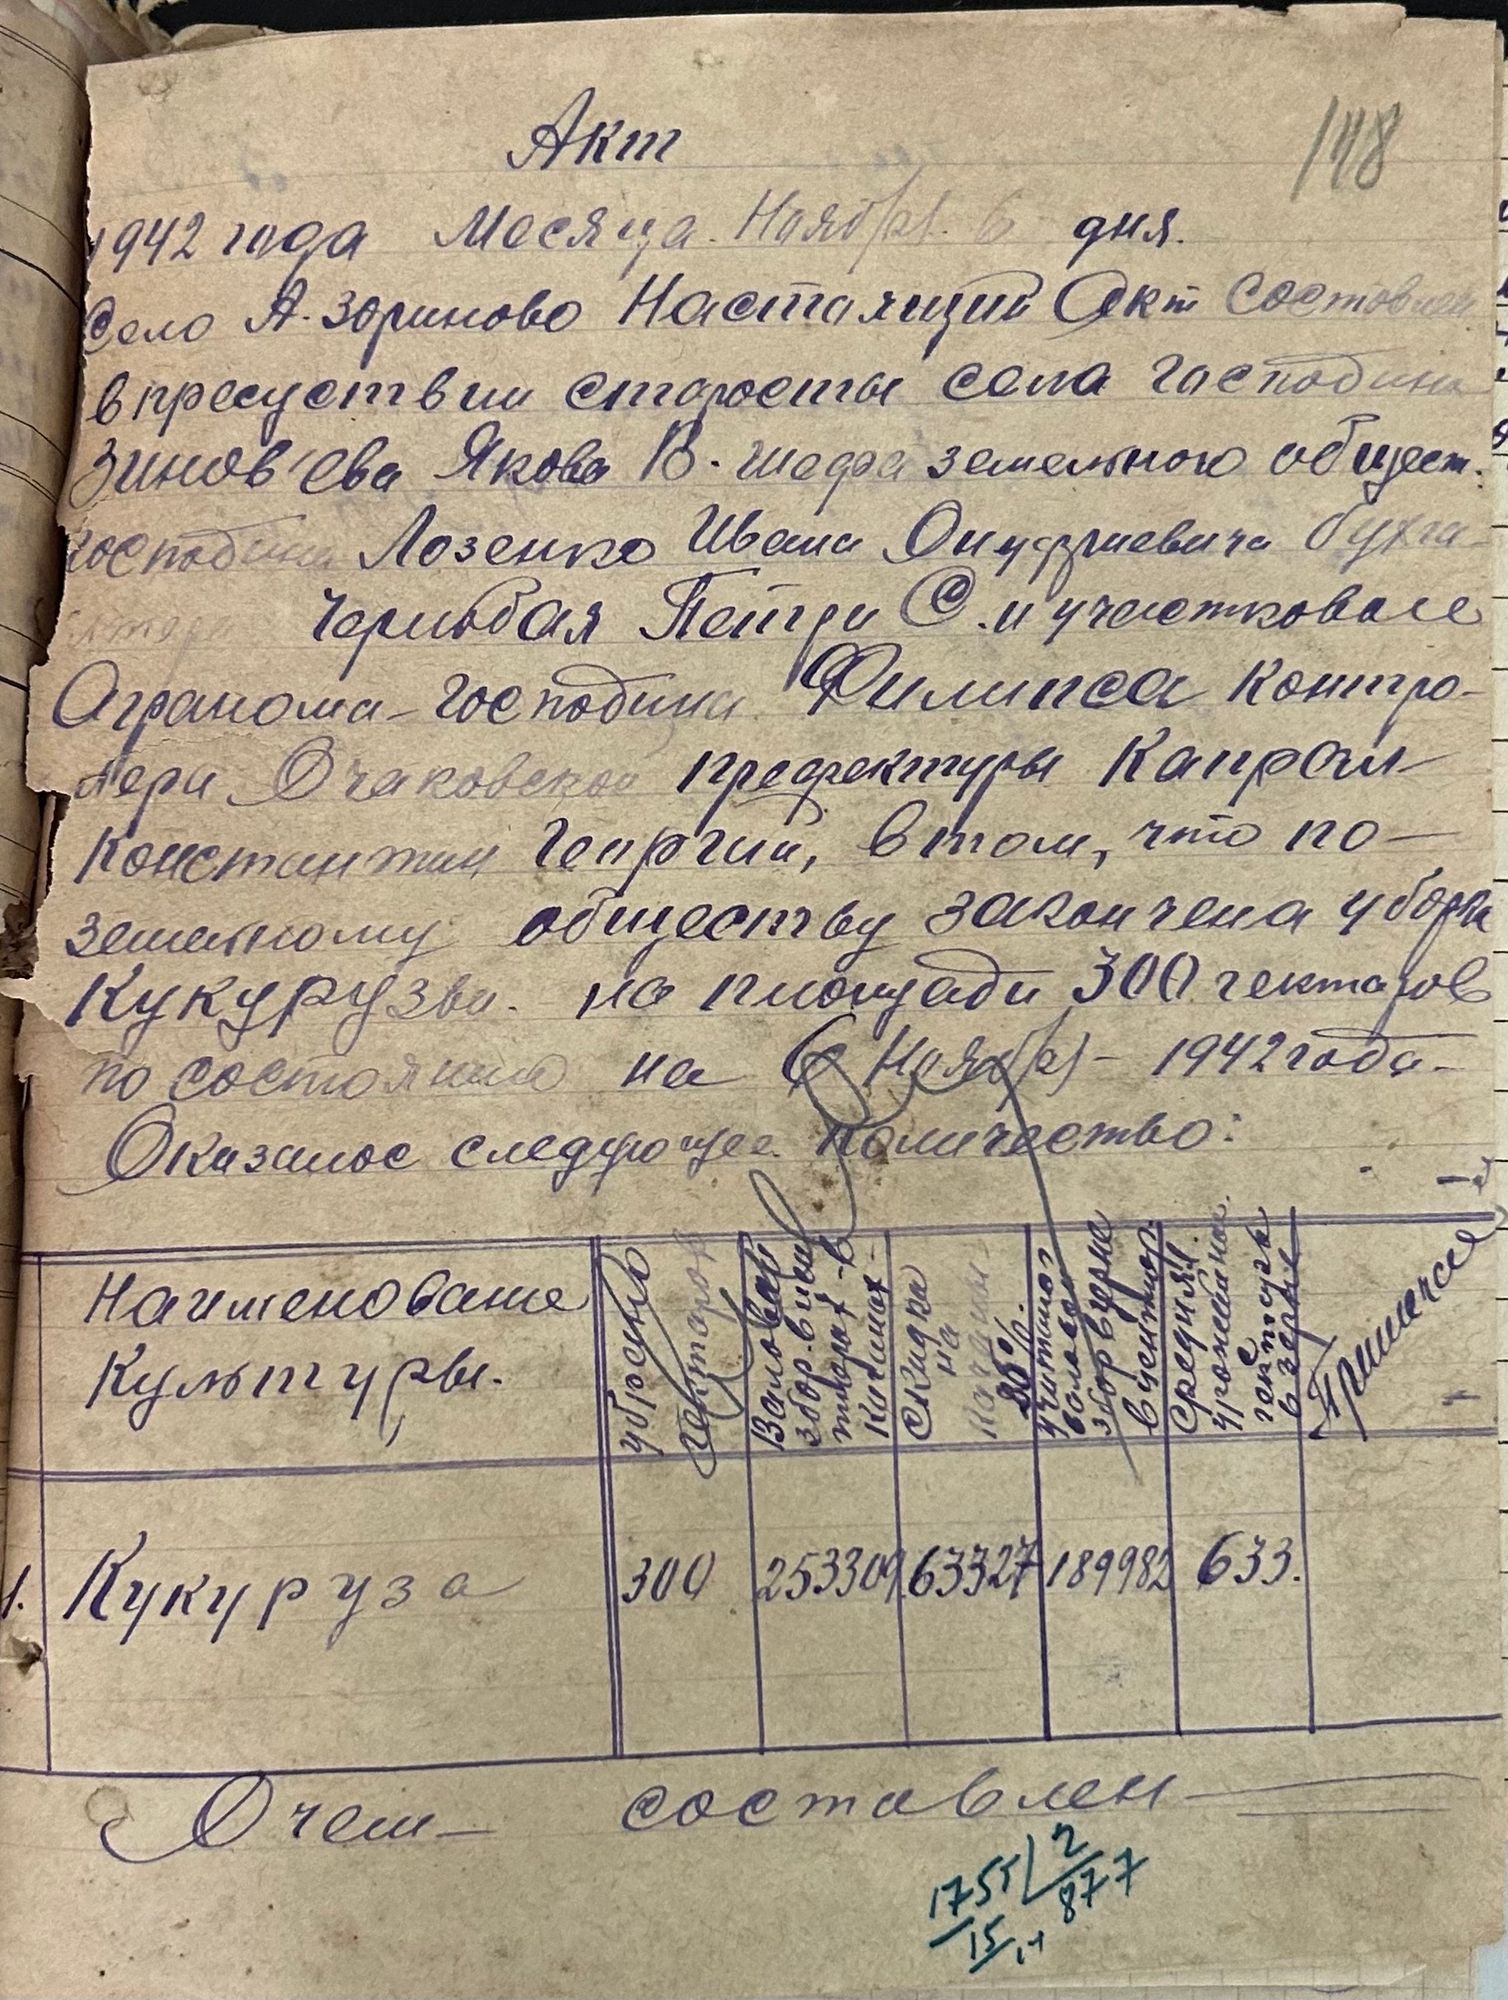 148
Акт
1942 года Месяца Ноября 6 дня.
Село А. Зориново Настаящий Акт Составлен
в пресуствии старосты села господина
Зинов'ева Якова В. шефа земельного общест.
господина Лозенко Ивана Онуфриевича бухга-
лтера Петри С. и участковаго
Агранома - господина Филипса контро-
лера Очаковской префектуры Капрал
Константин Георгий, в том, что по -
земельному обществу закончена уборка
Кукурузы. на площади 300 гектаров
по состоянию на 6 Ноября - 1942 года -
Оказалос следующее количество:
Наименование Культуры.
убрано гектаров
Валовай збор. в цен тнерах - в качанах -
Скидка на качаны 25%.
збор в зерне в центнер.
Средняя. урожайнос. гектара в зерне
Примечсея
1. Кукуруза 300 253309 63327 189982 633.
О чем - составлен -
1755 2
15 877
14